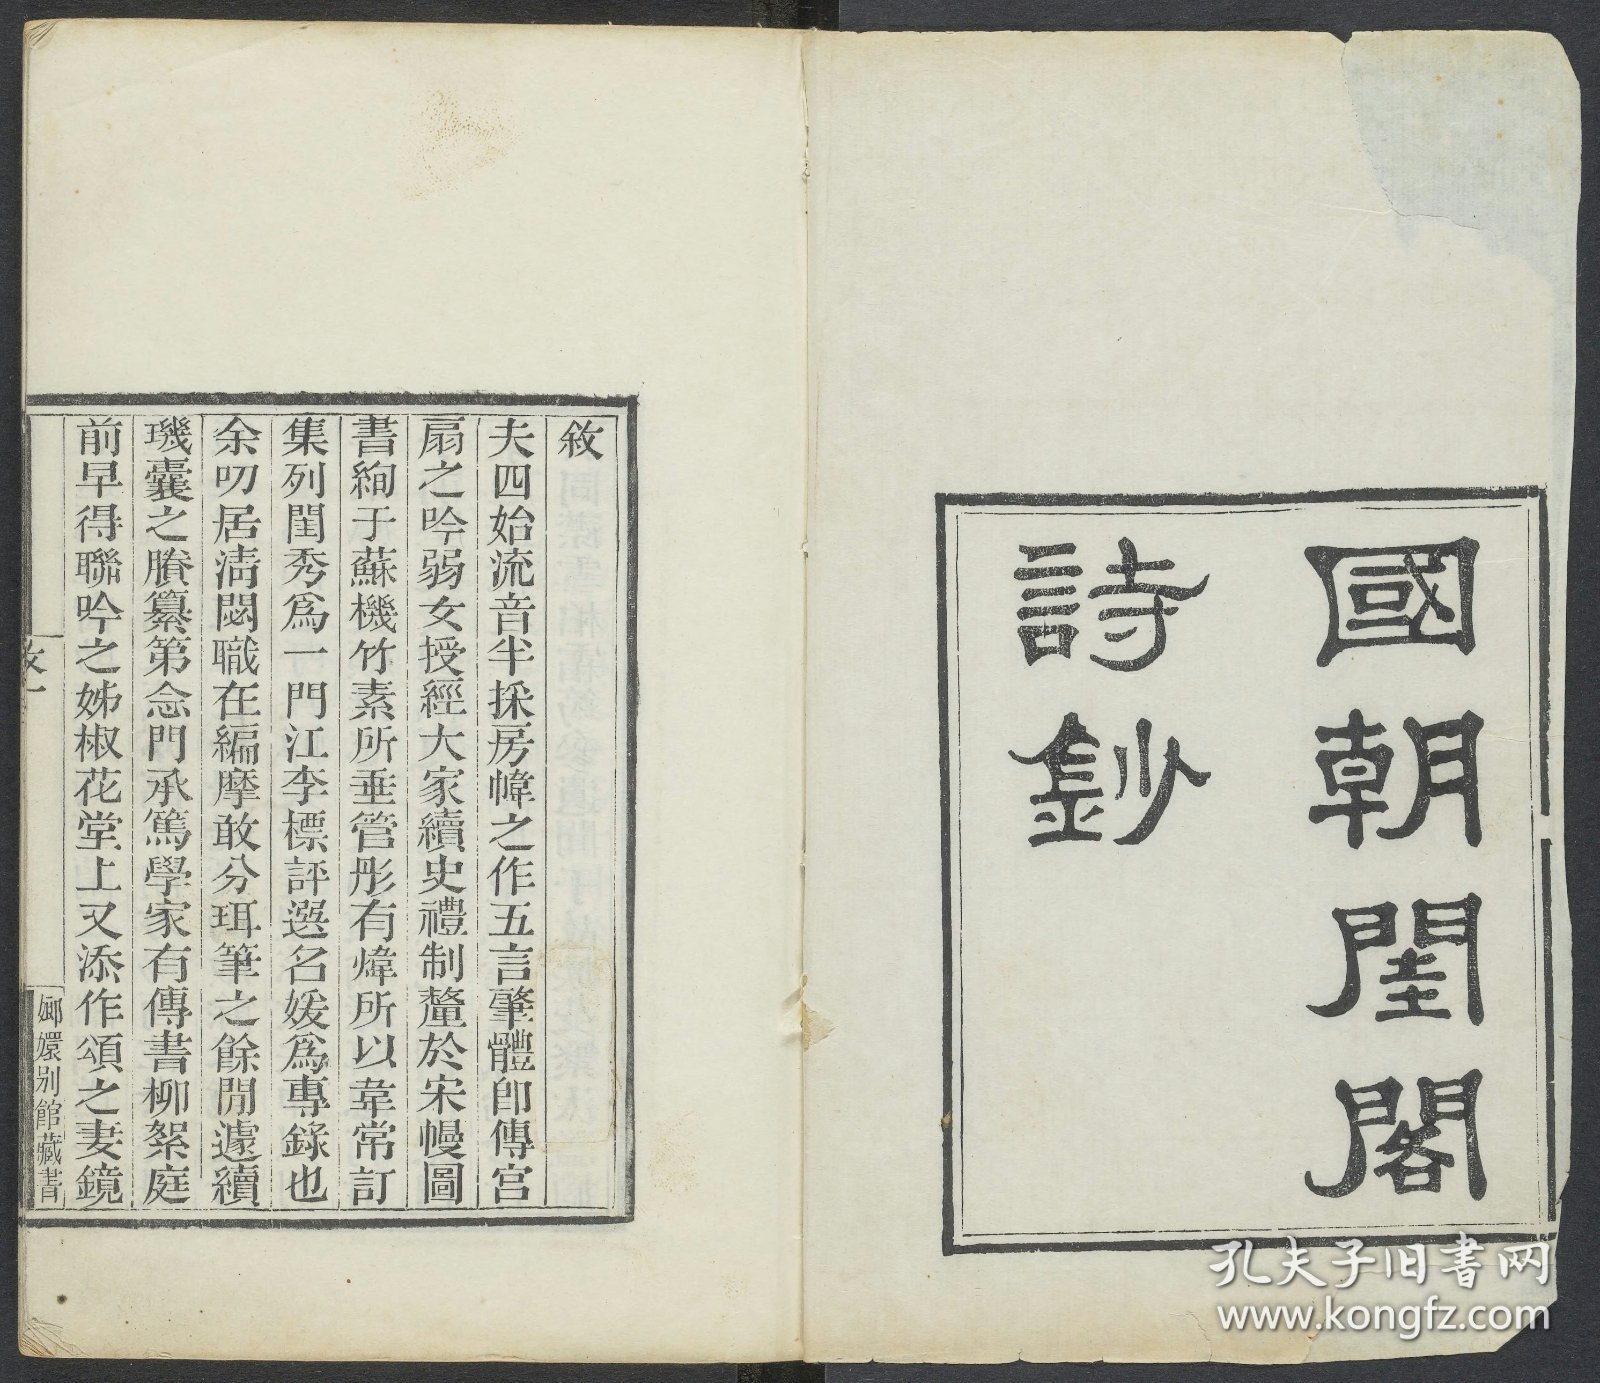 國朝閨閣
詩鈔
敘
夫四始流音半採房幃之作五言肇體卽傳宮
扇之吟弱女授經大家續史禮制釐於宋幔圖
書絢于蘇機竹素所垂管彤有煒所以韋常訂
集列閨秀爲一門江李標評選名媛爲專錄也
余叨居淸閟職在編摩敢分珥筆之餘閒遽續
璣囊之賸纂第念門承篤學家有傳書柳絮庭
前早得聯吟之姊椒花堂上又添作頌之妻鏡
敘一
嫏嬛别館藏書
孔夫子旧书网
www.kongfz.com